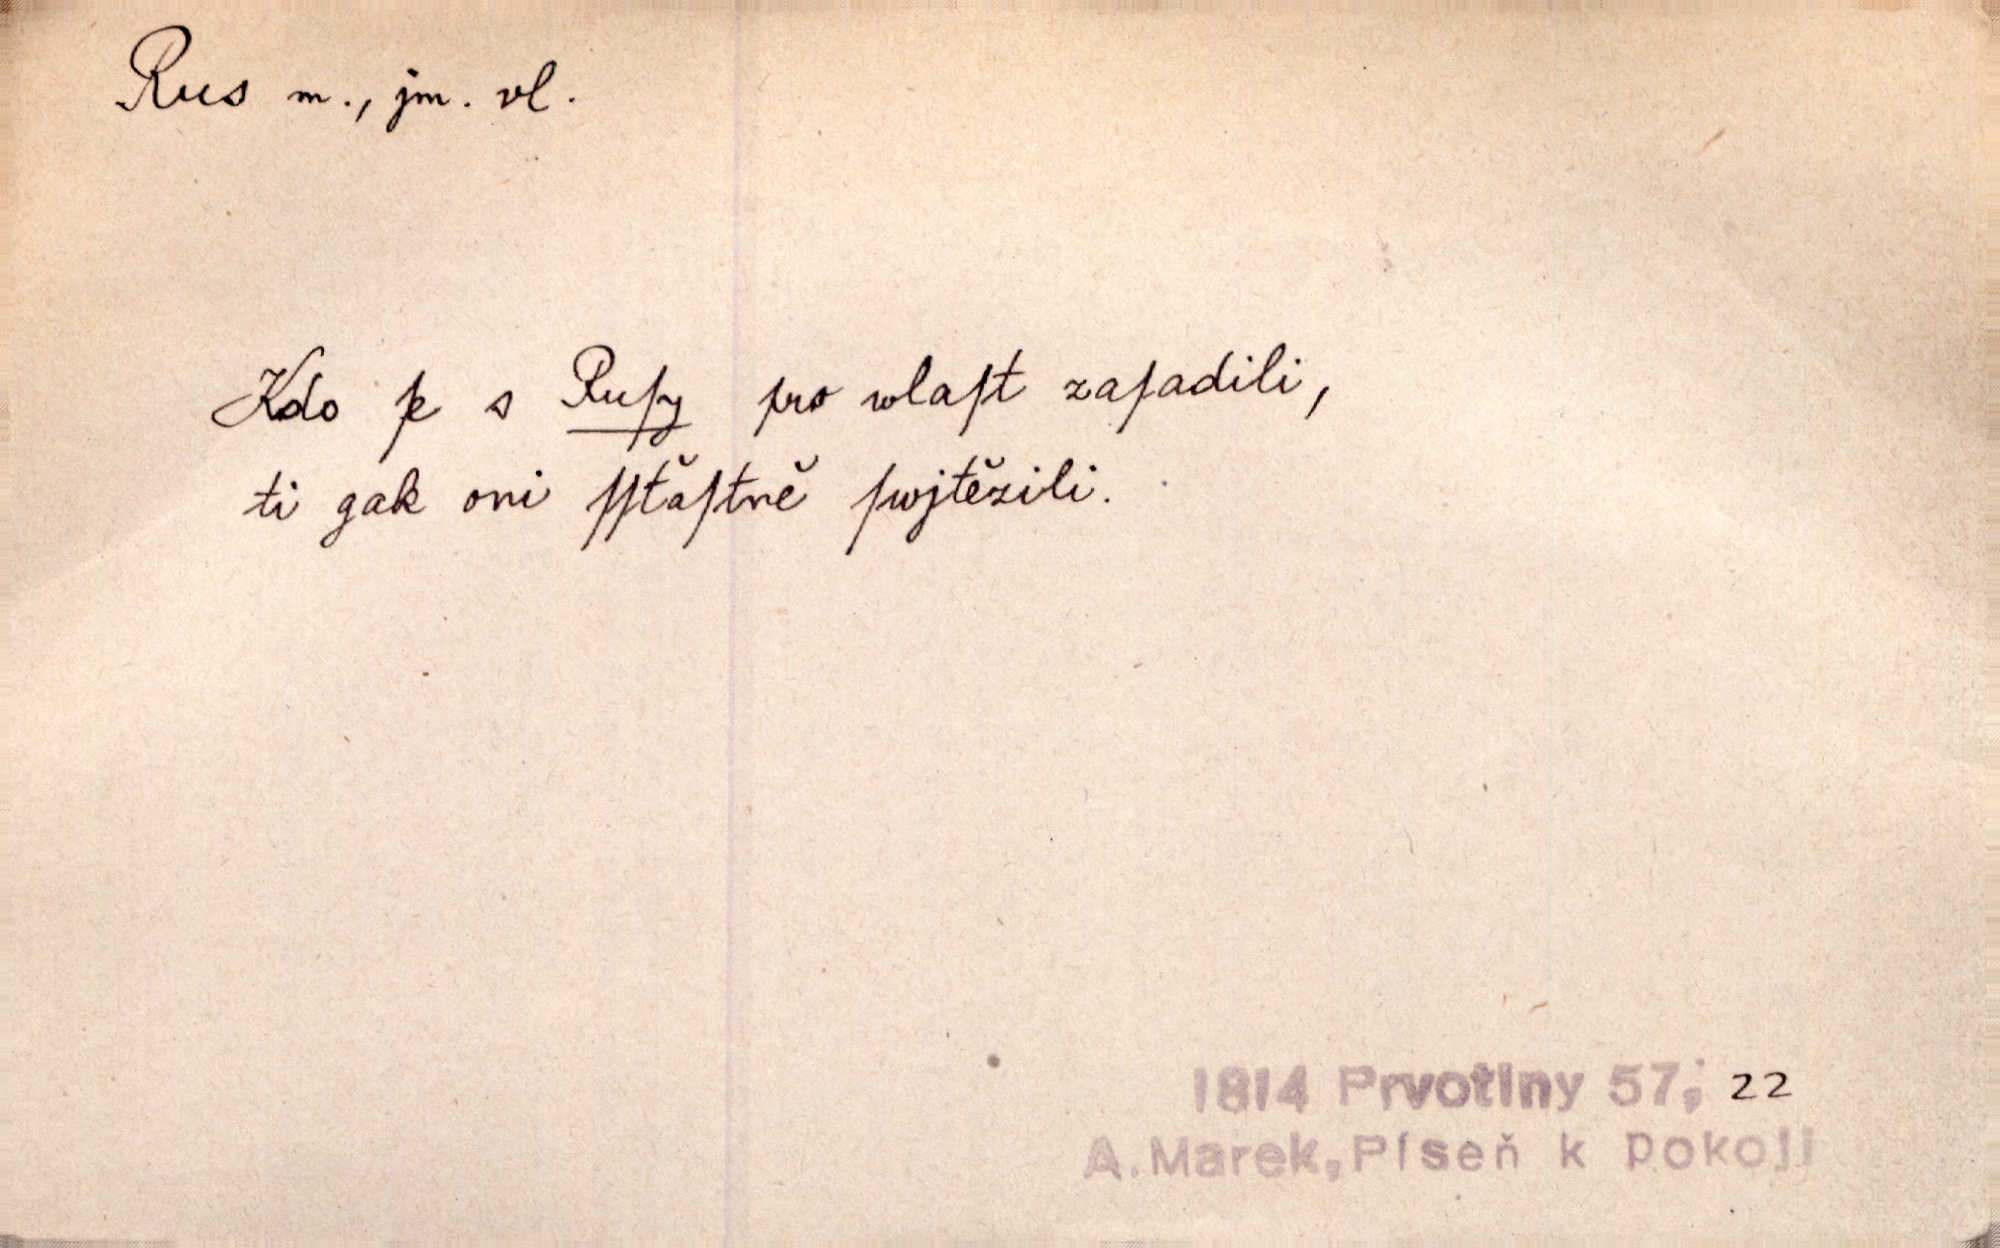 Rus m., jm. vl.
Kdo ſe s Ruſy pro wlaſt zaſadili,
ti gak oni ſſťaſtně ſwjtězili.
1814 Prvotiny 57, 22
A. Marek, Píseň k pokoji